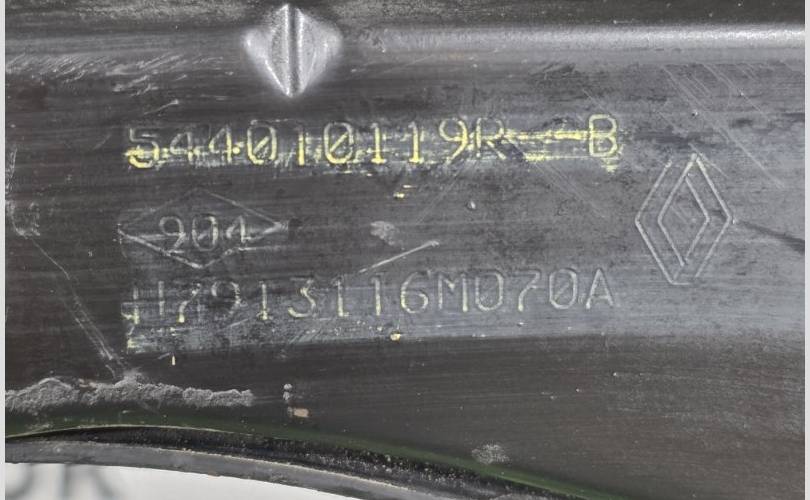 544010119R--B
904
H7913116M070A